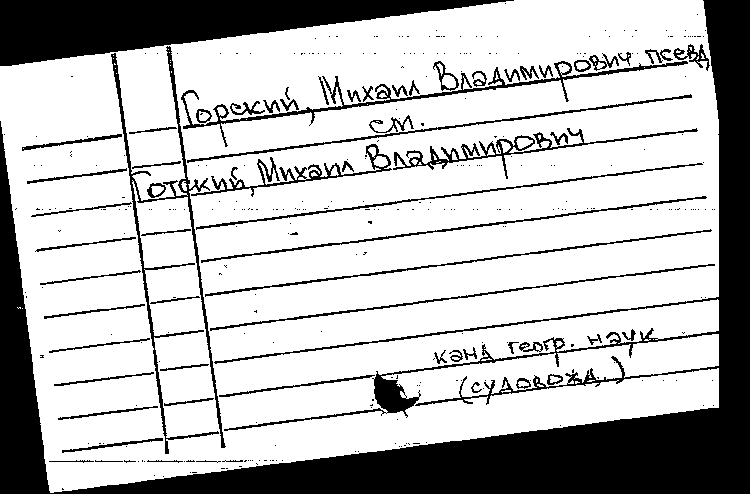 Горский, Михаил Владимирович, псевд
см.
Готский, Михаил Владимирович
канд геогр. наук
(судовожд.)